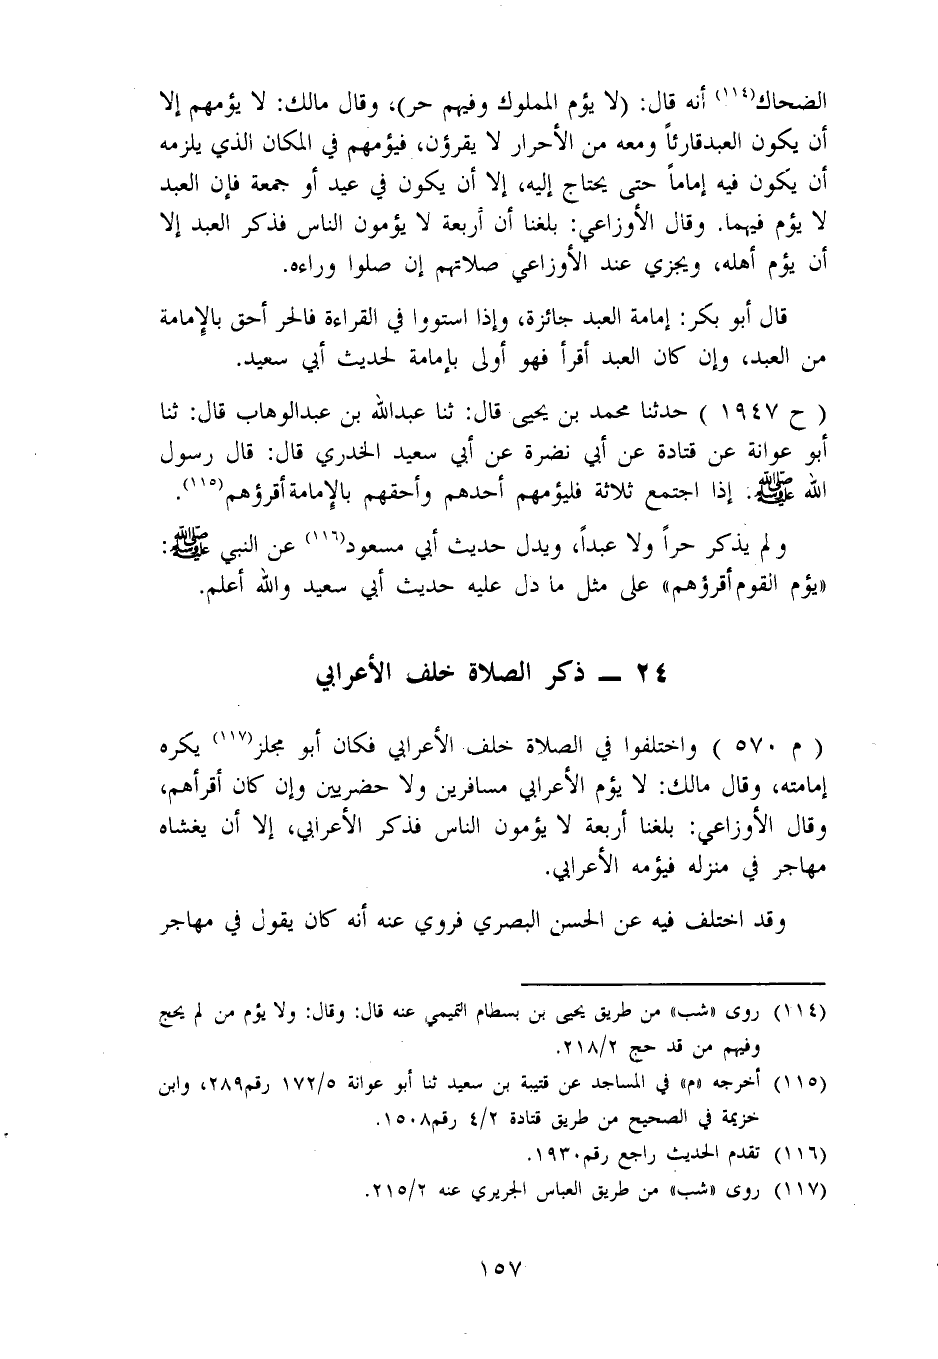 الضحاك(١١٤) أنه قال: (لا يؤم المملوك وفيهم حر)، وقال مالك: لا يؤمهم إلا
أن يكون العبدقارئاً ومعه من الأحرار لا يقرؤن، فيؤمهم في المكان الذي يلزمه
أن يكون فيه إماماً حتى يحتاج إليه، إلا أن يكون في عيد أو جمعة فإن العبد
لا يؤم فيهما. وقال الأوزاعي: بلغنا أن أربعة لا يؤمون الناس فذكر العبد إلا
أن يؤم أهله، ويجزي عند الأوزاعي صلاتهم إن صلوا وراءه.
قال أبو بكر: إمامة العبد جائزة، وإذا استووا في القراءة فالحر أحق بالإمامة
من العبد، وإن كان العبد أقرأ فهو أولى بإمامة لحديث أبي سعيد.
( ح ١٩٤٧ ) حدثنا محمد بن يحيى قال: ثنا عبدالله بن عبدالوهاب قال: ثنا
أبو عوانة عن قتادة عن أبي نضرة عن أبي سعيد الخدري قال: قال رسول
الله ﷺ: إذا اجتمع ثلاثة فليؤمهم أحدهم وأحقهم بالإمامة أقرؤهم(١١٥).
ولم يذكر حراً ولا عبداً، ويدل حديث أبي مسعود(١١٦) عن النبي ﷺ:
«يؤم القوم أقرؤهم» على مثل ما دل عليه حديث أبي سعيد والله أعلم.
٢٤ ـ ذكر الصلاة خلف الأعرابي
( م ٥٧٠ ) واختلفوا في الصلاة خلف الأعرابي فكان أبو مجلز(١١٧) يكره
إمامته، وقال مالك: لا يؤم الأعرابي مسافرين ولا حضريين وإن كان أقرأهم،
وقال الأوزاعي: بلغنا أربعة لا يؤمون الناس فذكر الأعرابي، إلا أن يغشاه
مهاجر في منزله فيؤمه الأعرابي.
وقد اختلف فيه عن الحسن البصري فروي عنه أنه كان يقول في مهاجر
(١١٤) روى «شب» من طريق يحيى بن بسطام التميمي عنه قال: وقال: ولا يؤم من لم يحج
وفيهم من قد حج ٢١٨/٢.
(١١٥) أخرجه «م» في المساجد عن قتيبة بن سعيد ثنا أبو عوانة ١٧٢/٥ رقم٢٨٩، وابن
خزيمة في الصحيح من طريق قتادة ٤/٢ رقم١٥٠٨.
(١١٦) تقدم الحديث راجع رقم١٩٣٠.
(١١٧) روى «شب» من طريق العباس الجريري عنه ٢١٥/٢.
١٥٧